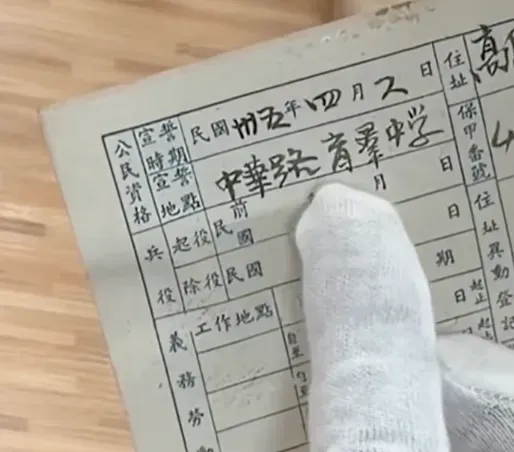 公民資格
宣誓時期 民國卅五年四月 日
宣誓地點 中華路育群中学
兵役
起役 民前國 月 日
除役 民國 期
義務勞
工作地點
自至
日
起止
住址 高
保甲番號
住址異動登記